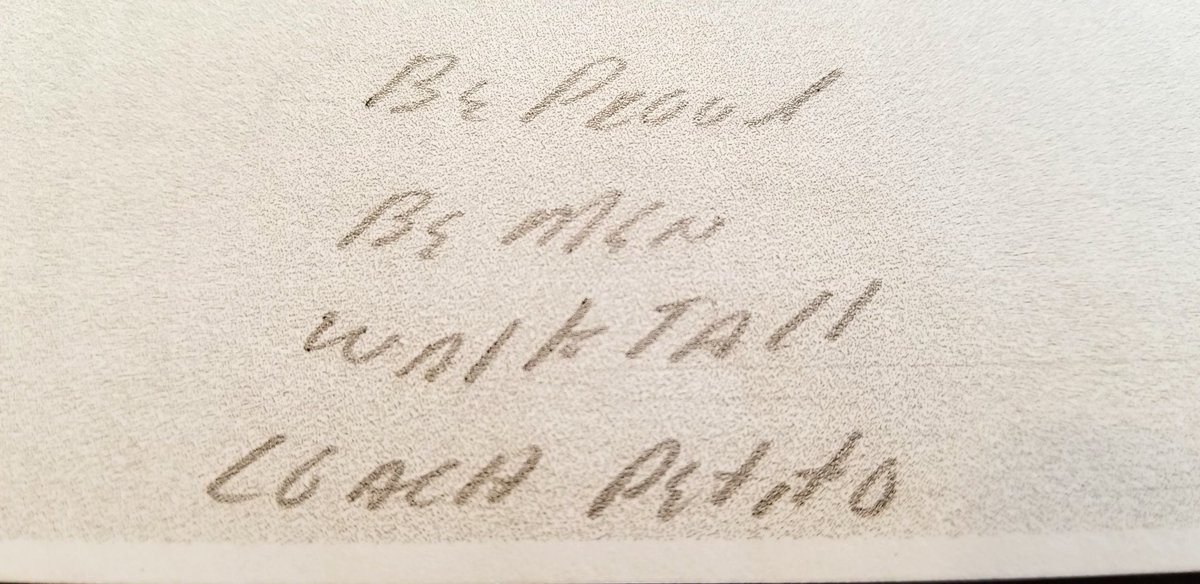 Be Proud
Be Men
Walk Tall
Coach Petito